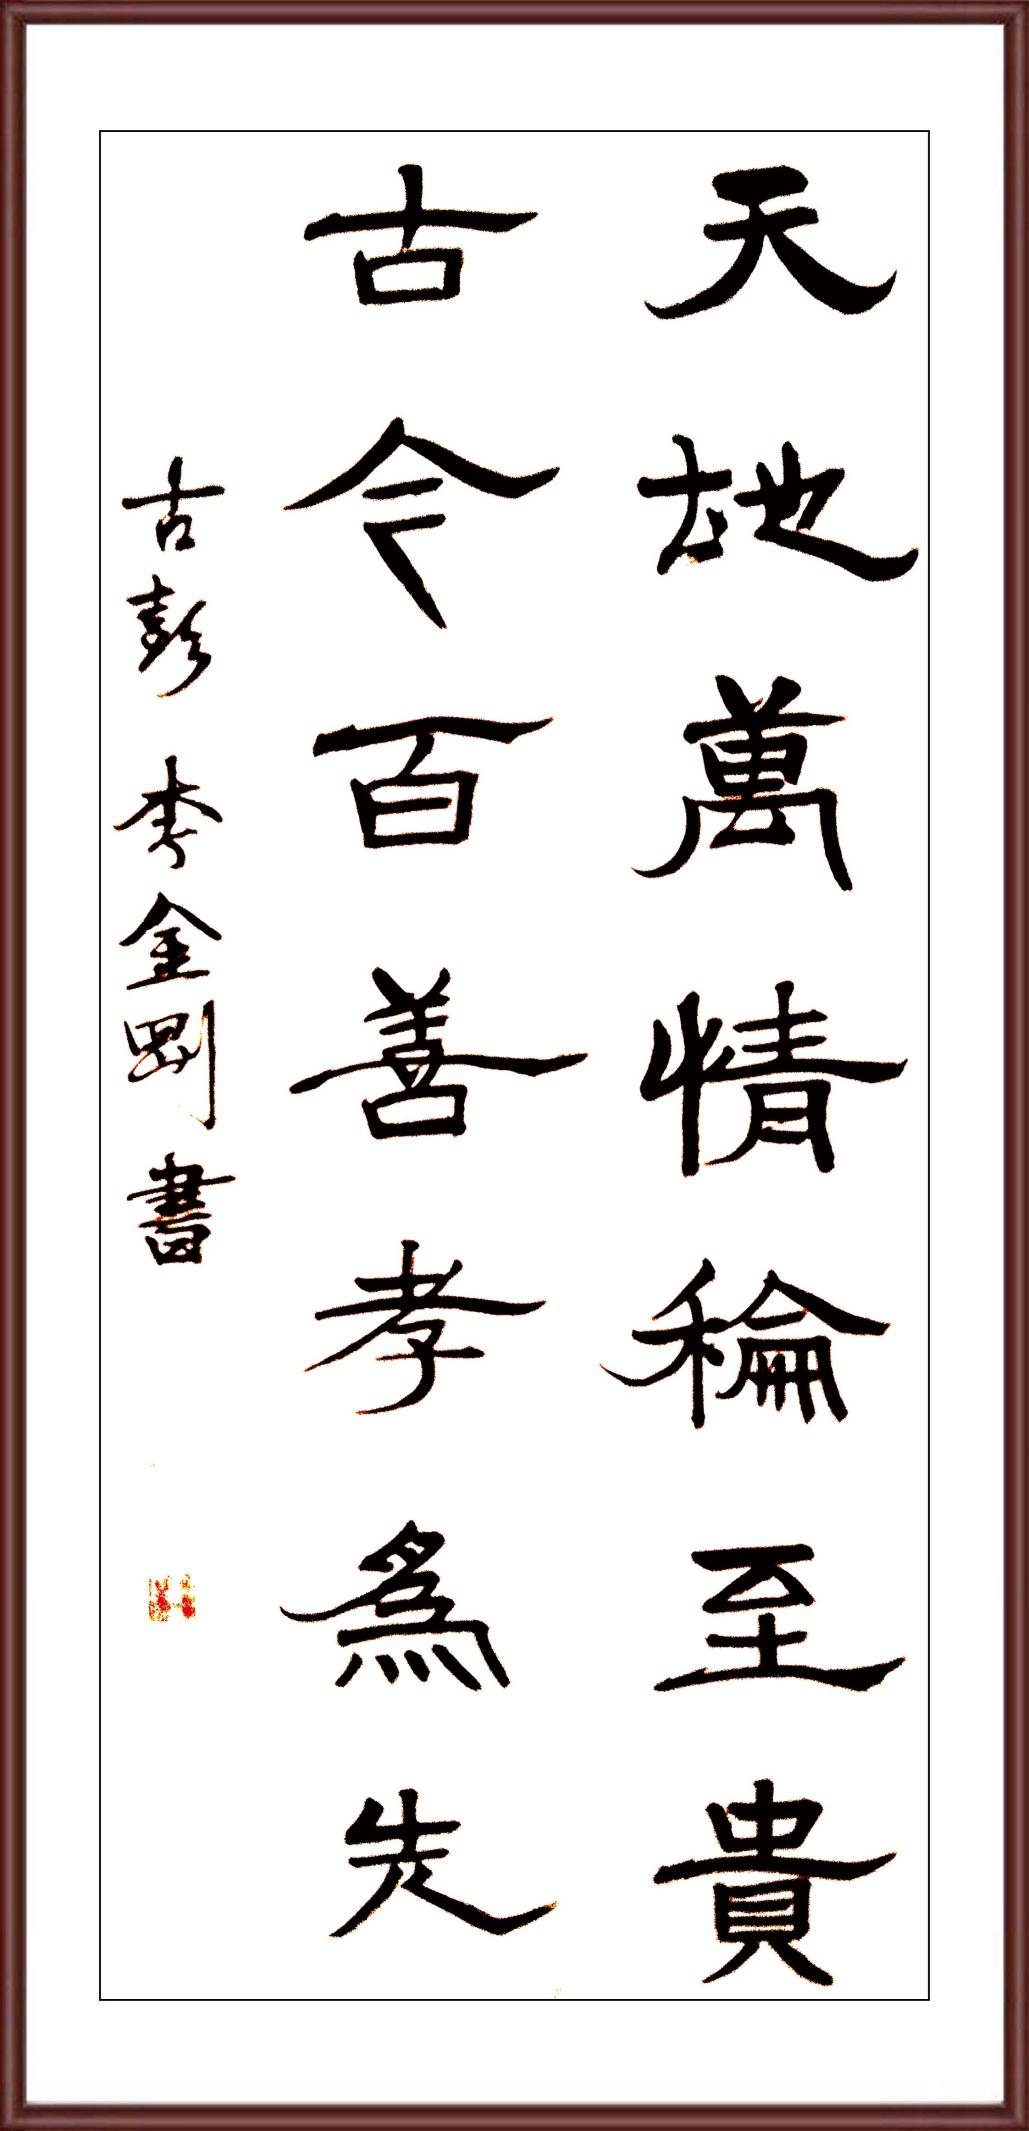 天地萬情稐至貴
古今百善孝為先
古彭 李金剛書